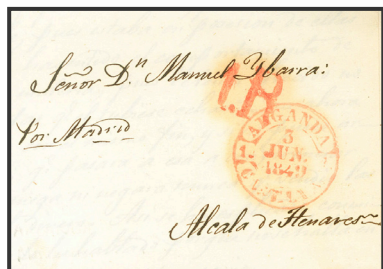 Señor D.ⁿ Manuel Ybarra:
1.R
Por Madrid
ARGANDA
3
JUN.
1849
Alcala de Henares